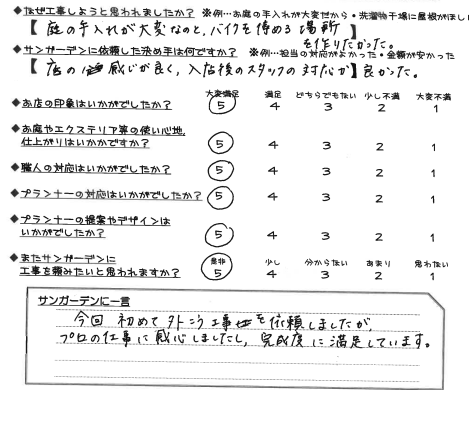 ◆なぜ工事しようと思われましたか? ※例…お庭の手入れが大変だから・洗濯物干場に屋根がほし
【庭の手入れが大変なのと、バイクを停める場所
を作りたかった。】
◆サンガーデンに依頼した決め手は何ですか? ※例…担当の対応がよかった・金額が安かった
【店の感じが良く、入店後のスタッフの対応が】良かった。
大変満足 満足 どちらでもない 少し不満 大変不満
◆お店の印象はいかがでしたか? 5 4 3 2 1
◆お庭やエクステリア等の使い心地、
仕上がりはいかがですか? 5 4 3 2 1
◆職人の対応はいかがでしたか? 5 4 3 2 1
◆プランナーの対応はいかがでしたか? 5 4 3 2 1
◆プランナーの提案やデザインは
いかがでしたか? 5 4 3 2 1
◆またサンガーデンに 是非 少し 分からない あまり 思わない
工事を頼みたいと思われますか? 5 4 3 2 1
サンガーデンに一言
今回 初めて外こう工事を依頼しましたが、
プロの仕事に感心しましたし、完成度に満足しています。